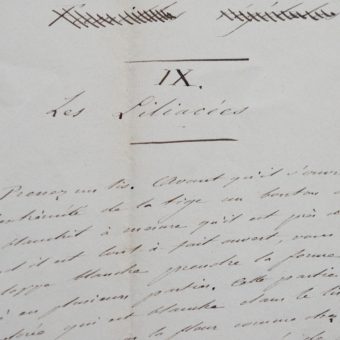 IX.
Les Liliacées
Prenez un lis. Avant qu'il s'ouvre
l'extrémité de la tige un bouton
blanchit à mesure qu'il est près
et il est tout à fait ouvert, vous
blanche prendre la forme
en plusieurs parties. Cette partie
qui est blanche dans le lis
la fleur comme chez